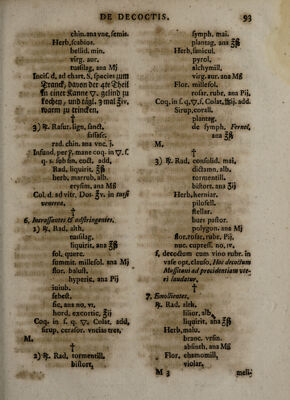 DE DECOCTIS. 93
chin. ana vnc. semis.
Herb. scabios.
bellid. min.
virg. aur.
tussilag. ana Mj
Incis. d. ad chart. S. species zum
Tranck, davon der 4te Theil
in einer Kanne ▽. gelind zu
kochen, und tägl. 3 mal
warm zu trincken.
†
3) ℞. Rasur. lign. sanct.
sassafr.
rad. chin. ana vnc. j.
Infund. per
q. s. sub fin. coct. add.
Rad. liquirit.
herb. marrub. alb.
erysim. ana Mß
Col. d. ad vitr. Dos. in tussi
venerea.
†
6. Incrassantes & adstringentes.
1) ℞. Rad. alth.
tussilag.
liquirit. ana ʒß
fol. querc.
summit. millefol. ana Mj
flor. balust.
hyperic. ana Pij
iniub.
sebest.
fic. ana no. vi.
hord. excortic. ʒij
Coq. in s. q. ▽. Colat. add.
Sirup. cerasor. vncias tres.
M.
†
2) ℞. Rad. tormentill.
bistort.
symph. mai.
plantag. ana ʒß
Herb. sanicul.
pyrol.
alchymill.
virg. aur. ana Mß
Flor. millefol.
rosar. rubr. ana Pij
Coq. in s. q. ▽. s. Colat. add.
Sirup. corall.
plantag.
de symph. Fernel.
ana ʒß
M.
†
3) ℞. Rad. consolid. mai.
dictamn. alb.
tormentill.
bistort. ana ʒij
Herb. herniar.
pilosell.
stellar.
burs pastor.
polygon. ana Mj
flor. rosar. rubr. Pij.
nuc. cupress. no. iv.
f. decoctum cum vino rubr. in
vase opt. clauso. Hoc decoctum
Massicani ad procidentiam vte-
ri laudatur.
†
7. Emollientes.
℞. Rad. alth.
lilior. alb.
liquirit. ana ʒß
Herb. malu.
branc. vrsin.
absinth. ana Mß
Flor. chamomill.
violar.
M 3 meli-